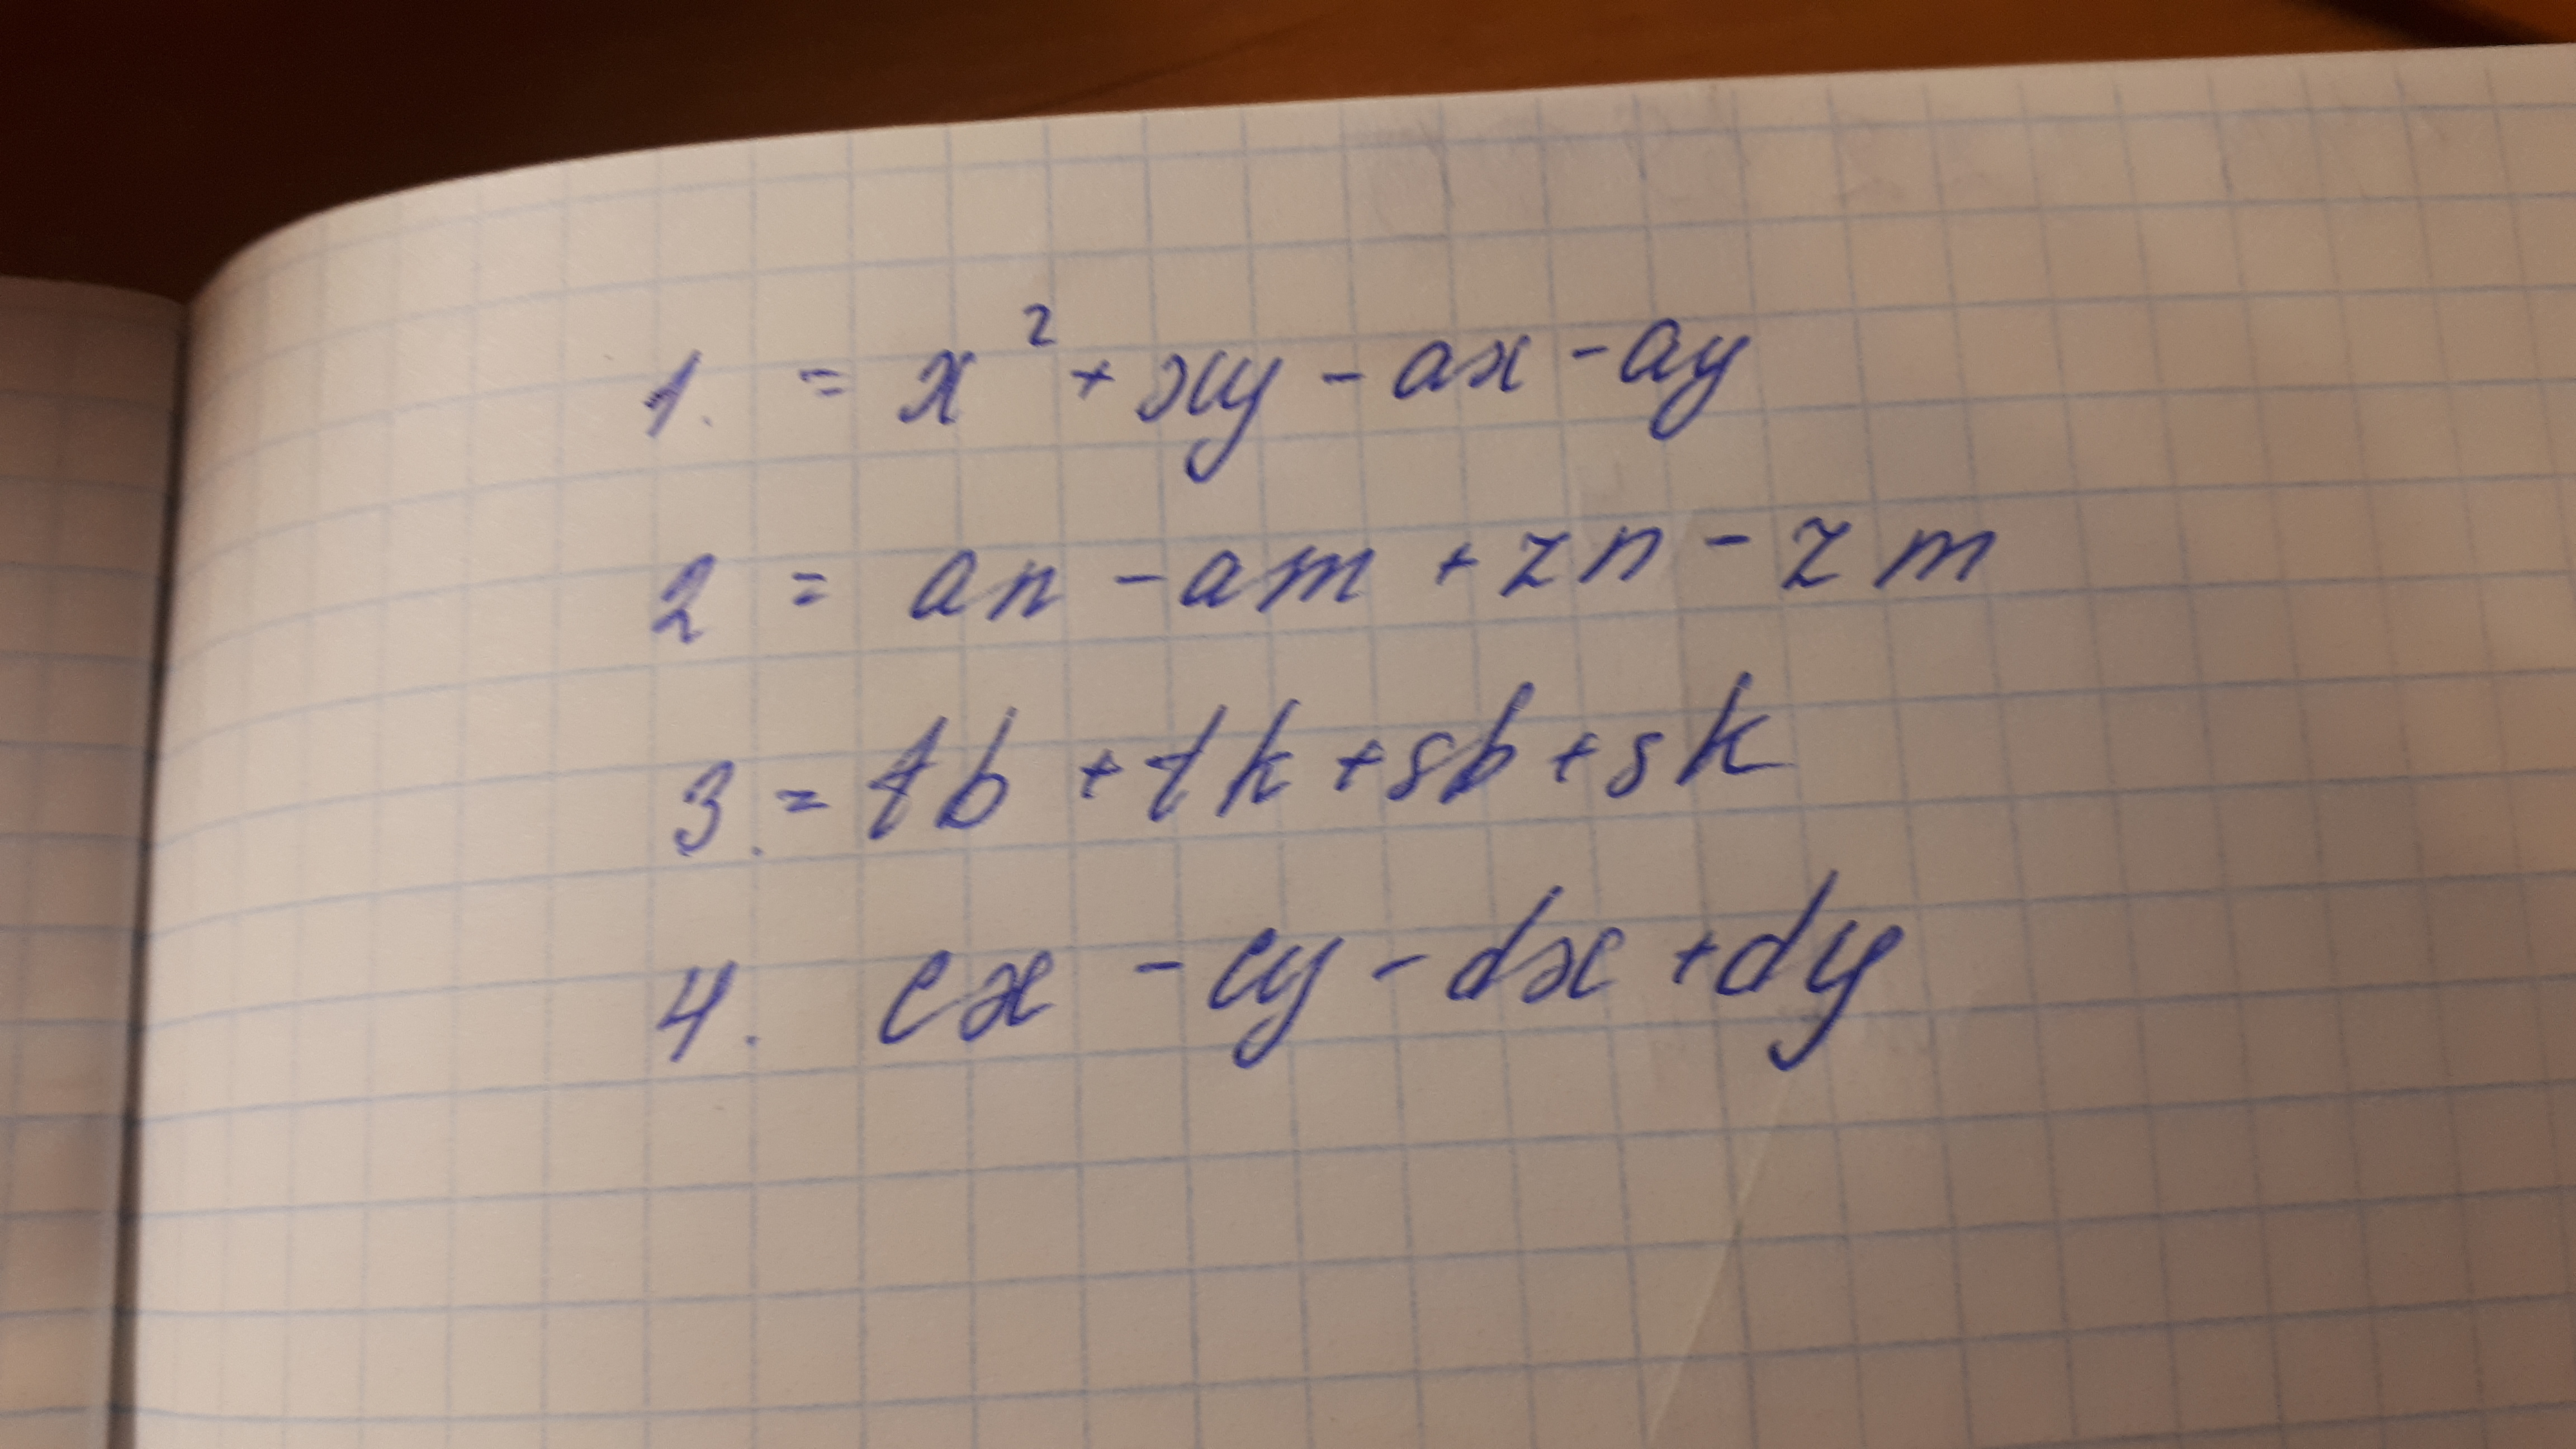 1. = x² + xy - ax - ay
2 = an - am + zn - zm
3. = tb + tk + sb + sk
4. cx - cy - dx + dy